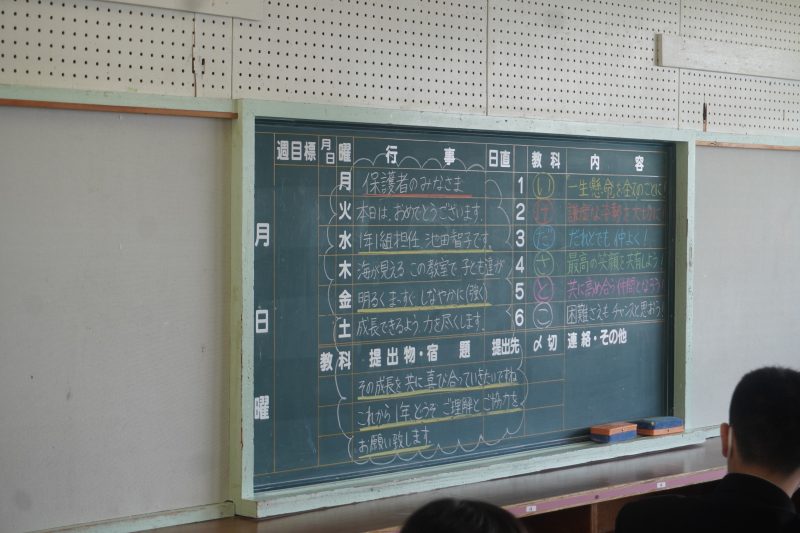 週目標 月日 曜 行事 日直 教科 内容
月 保護者のみなさま 1 い 一生懸命を全てのことに
火 本日は、おめでとうございます。 2 け 謙虚な
水 1年1組担任、池田智子です。 3 だ だれとでも仲よく!
木 海が見える この教室で 子ども達が 4 さ 最高の笑顔を共有しよう
金 明るく まっすぐ しなやかに(強く) 5 と 共に高め合う仲間となろう
土 成長できるよう、力を尽くします。 6 こ 困難さえもチャンスと思おう
教科 提出物・宿題 提出先 〆切 連絡・その他
その成長を共に喜び合っていきたいですね
これから1年、どうぞ ご理解と ご協力を
お願い致します。
月
日
曜